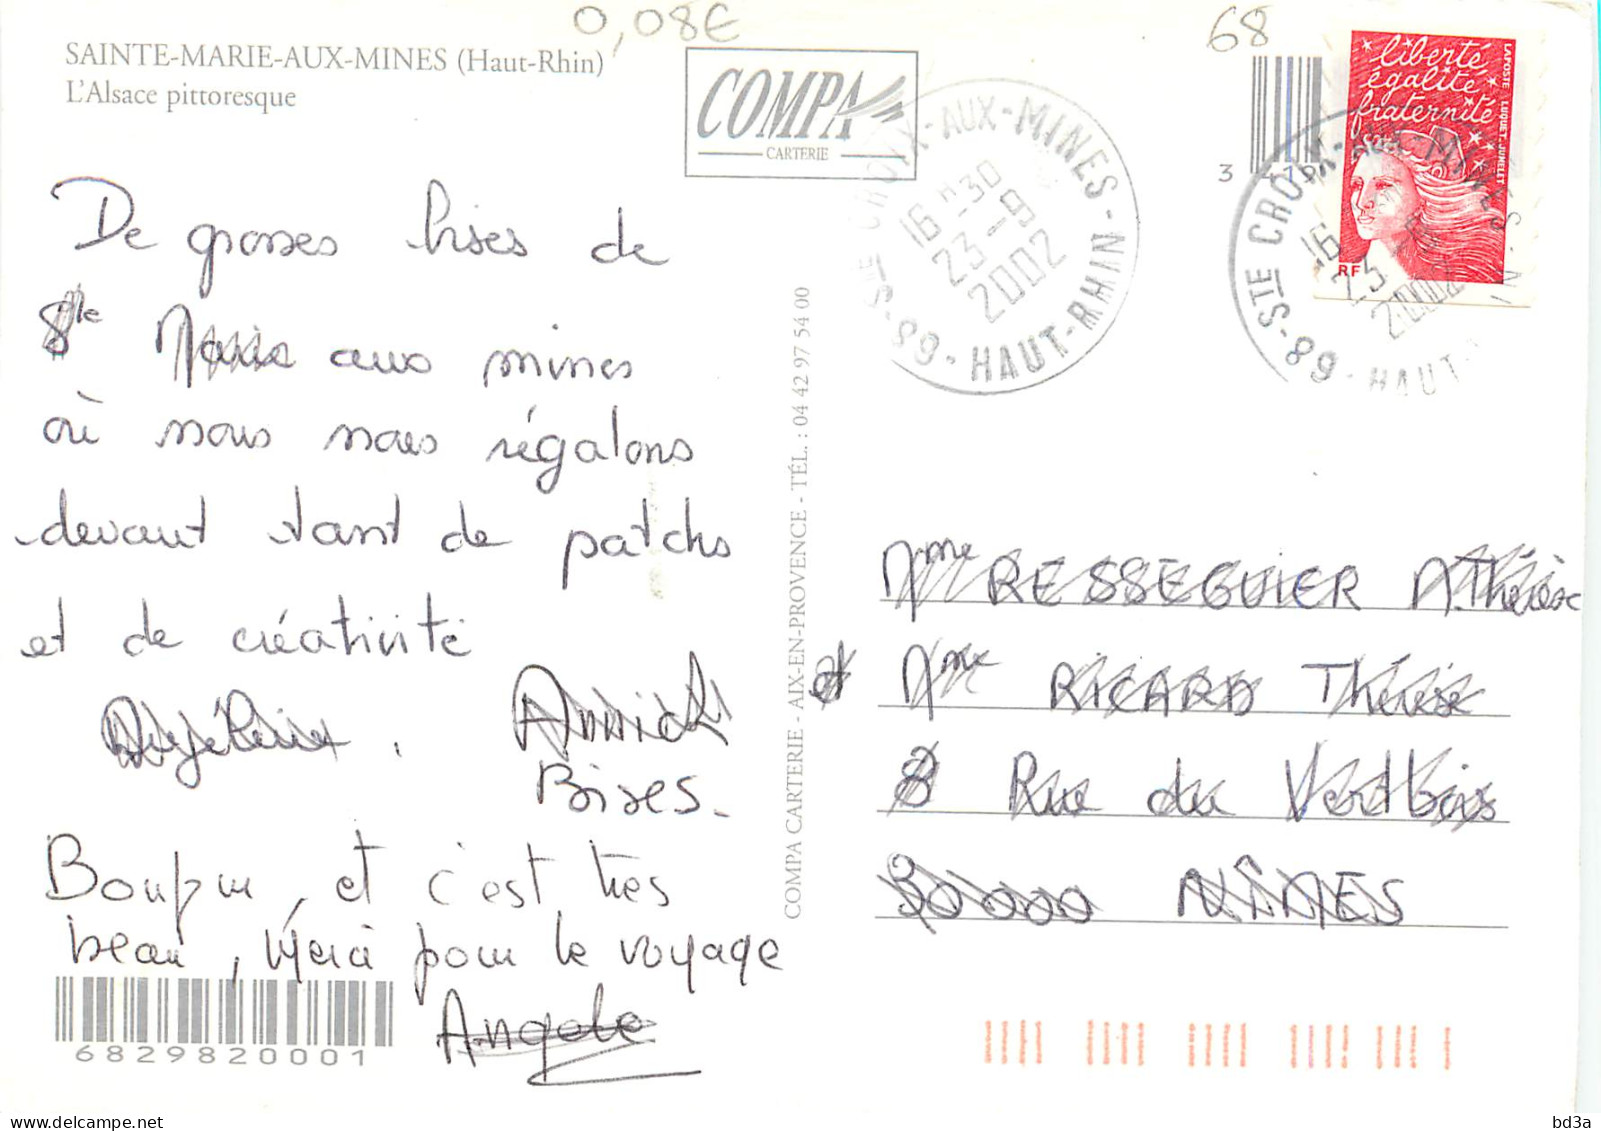 0,08€
68
SAINTE-MARIE-AUX-MINES (Haut-Rhin)
L'Alsace pittoresque
COMPA
CARTERIE
liberté
égalité
fraternité
LAPOSTE LUQUET.JUMELET
RF
STE CROIX-AUX-MINES - HAUT-RHIN - 68
16H30
23-9
2002
STE CROIX-AUX-MINES - HAUT- 68
16
23
2002
3
De grosses bises de
Ste Marie aux mines
où nous nous régalons
devant tant de patchs
et de créativité
Annick
Bises.
Bonjour, et c'est très
beau, Merci pour le voyage
Angele
6829820001
COMPA CARTERIE - AIX-EN-PROVENCE - TÉL. : 04 42 97 54 00
Mme RESSEGUIER M.Thérèse
et Mme RICARD Thérèse
8 Rue du Verdbois
30000 NÎMES
bd3a